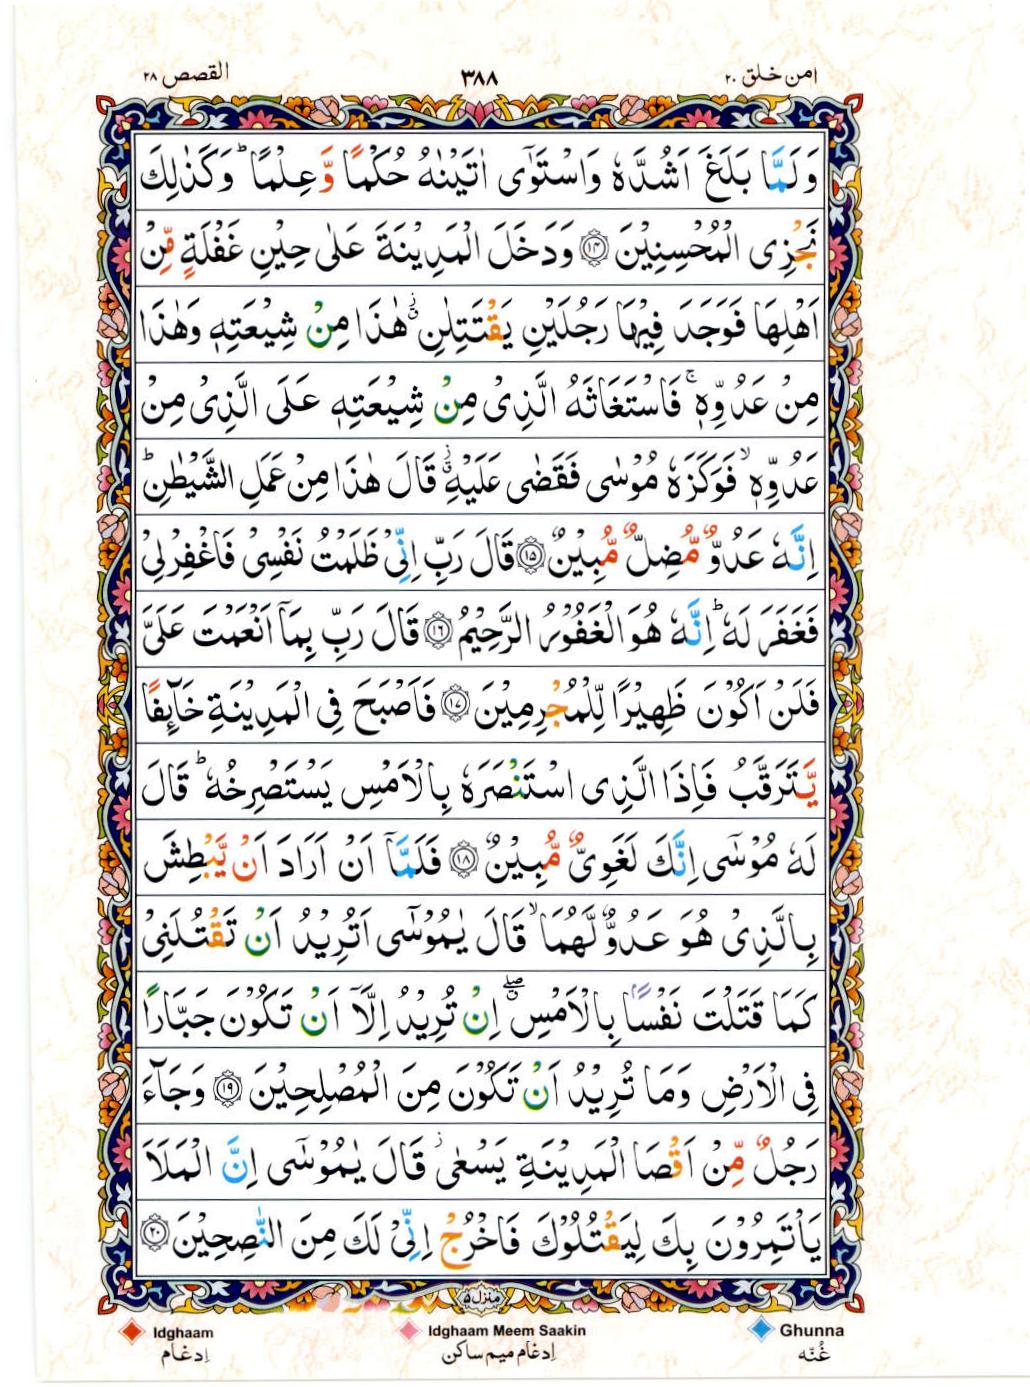 امن خلق ۲۰
۳۸۸
القصص ۲۸
وَلَمَّا بَلَغَ اَشُدَّهٗ وَاسْتَوٰٓى اٰتَيْنٰهُ حُكْمًا وَّعِلْمًا ؕ وَكَذٰلِكَ
نَجْزِى الْمُحْسِنِيْنَ ﴿۱۴﴾ وَدَخَلَ الْمَدِيْنَةَ عَلٰى حِيْنِ غَفْلَةٍ مِّنْ
اَهْلِهَا فَوَجَدَ فِيْهَا رَجُلَيْنِ يَقْتَتِلٰنِ ۫ۗ هٰذَا مِنْ شِيْعَتِهٖ وَهٰذَا
مِنْ عَدُوِّهٖ ۚ فَاسْتَغَاثَهُ الَّذِىْ مِنْ شِيْعَتِهٖ عَلَى الَّذِىْ مِنْ
عَدُوِّهٖ ۙ فَوَكَزَهٗ مُوْسٰى فَقَضٰى عَلَيْهِ ۫ۗ قَالَ هٰذَا مِنْ عَمَلِ الشَّيْطٰنِ ؕ
اِنَّهٗ عَدُوٌّ مُّضِلٌّ مُّبِيْنٌ ﴿۱۵﴾ قَالَ رَبِّ اِنِّىْ ظَلَمْتُ نَفْسِىْ فَاغْفِرْ لِىْ
فَغَفَرَ لَهٗ ؕ اِنَّهٗ هُوَ الْغَفُوْرُ الرَّحِيْمُ ﴿۱۶﴾ قَالَ رَبِّ بِمَاۤ اَنْعَمْتَ عَلَىَّ
فَلَنْ اَكُوْنَ ظَهِيْرًا لِّلْمُجْرِمِيْنَ ﴿۱۷﴾ فَاَصْبَحَ فِى الْمَدِيْنَةِ خَآئِفًا
يَّتَرَقَّبُ فَاِذَا الَّذِى اسْتَنْصَرَهٗ بِالْاَمْسِ يَسْتَصْرِخُهٗ ؕ قَالَ
لَهٗ مُوْسٰٓى اِنَّكَ لَغَوِىٌّ مُّبِيْنٌ ﴿۱۸﴾ فَلَمَّاۤ اَنْ اَرَادَ اَنْ يَّبْطِشَ
بِالَّذِىْ هُوَ عَدُوٌّ لَّهُمَا ۙ قَالَ يٰمُوْسٰٓى اَتُرِيْدُ اَنْ تَقْتُلَنِىْ
كَمَا قَتَلْتَ نَفْسًاۢ بِالْاَمْسِ ۖۗ اِنْ تُرِيْدُ اِلَّاۤ اَنْ تَكُوْنَ جَبَّارًا
فِى الْاَرْضِ وَمَا تُرِيْدُ اَنْ تَكُوْنَ مِنَ الْمُصْلِحِيْنَ ﴿۱۹﴾ وَجَآءَ
رَجُلٌ مِّنْ اَقْصَا الْمَدِيْنَةِ يَسْعٰى ۫ قَالَ يٰمُوْسٰٓى اِنَّ الْمَلَاَ
يَاْتَمِرُوْنَ بِكَ لِيَقْتُلُوْكَ فَاخْرُجْ اِنِّىْ لَكَ مِنَ النّٰصِحِيْنَ ﴿۲۰﴾
منزل ۵
Idghaam Idghaam Meem Saakin Ghunna
اِدغام اِدغام میم ساکن غُنّه